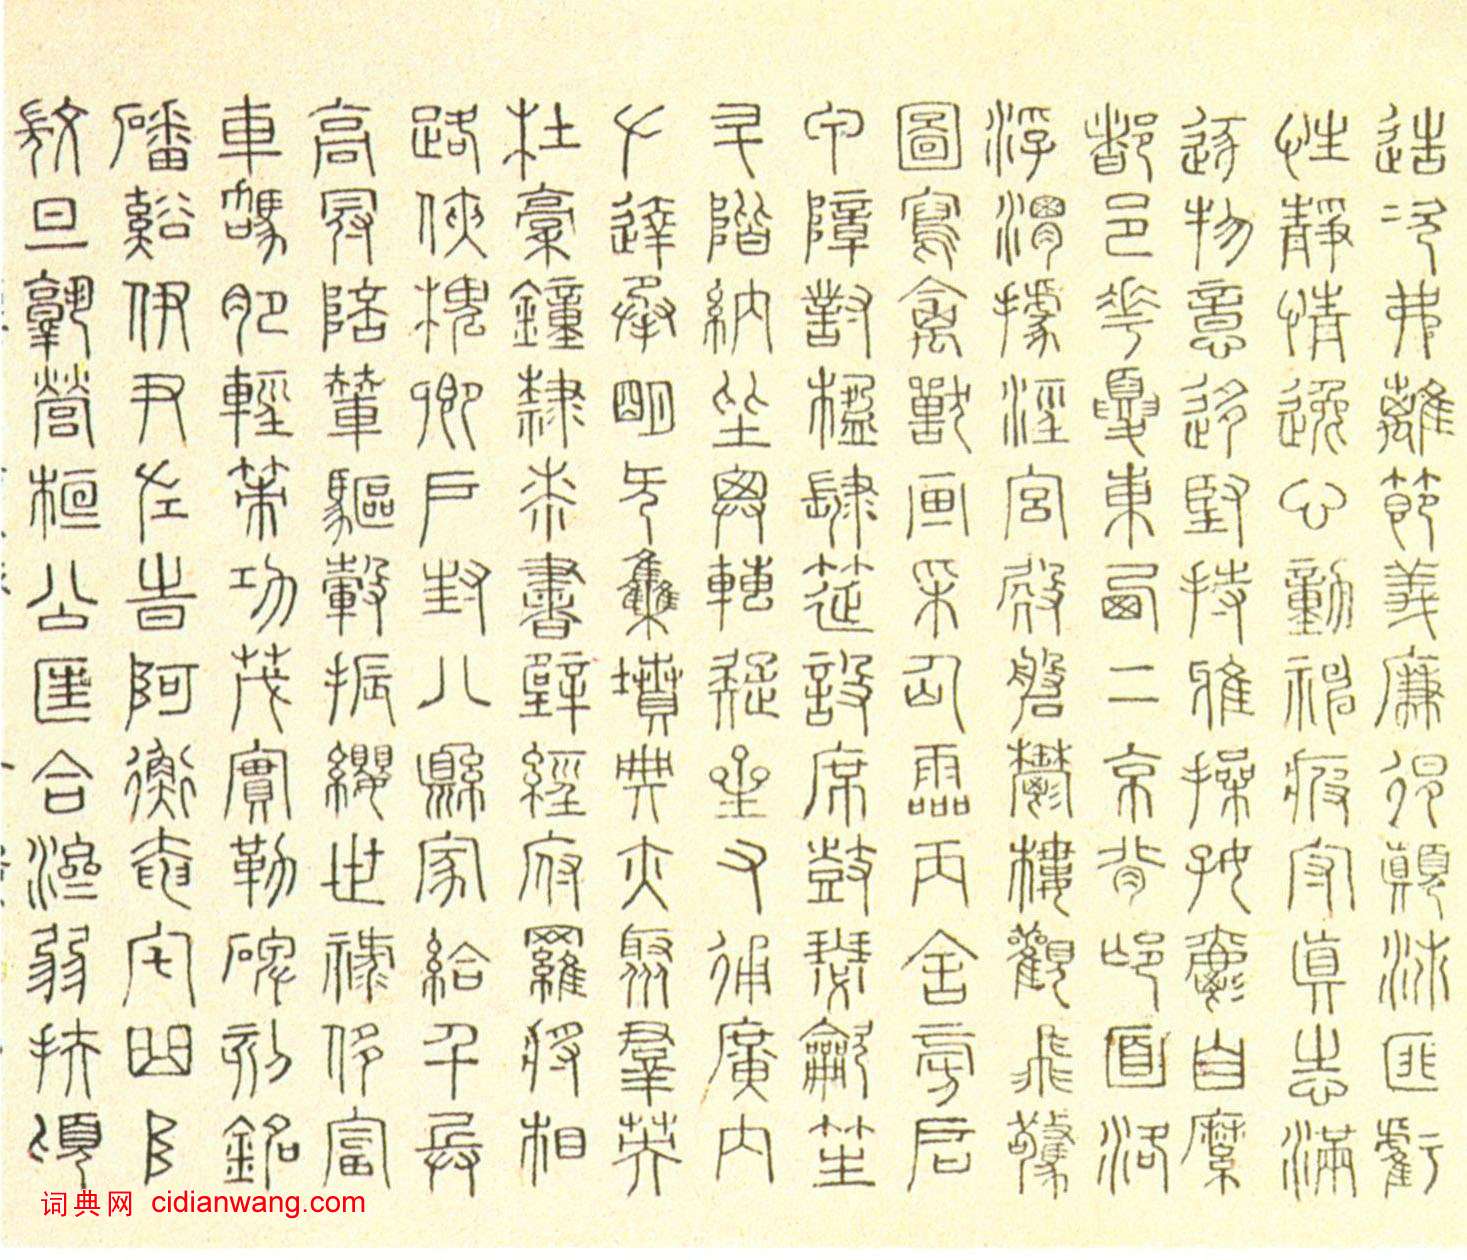 造次弗離節義廉退顛沛匪虧
性靜情逸心動神疲守真志滿
逐物意移堅持雅操好爵自縻
都邑華夏東西二京背邙面洛
浮渭據涇宮殿盤鬱樓觀飛驚
圖寫禽獸畫采仙靈丙舍傍啟
甲帳對楹肆筵設席鼓瑟吹笙
升階納陛弁轉疑星右通廣內
左達承明既集墳典亦聚群英
杜稾鍾隸漆書壁經府羅將相
路俠槐卿戶封八縣家給千兵
高冠陪輦驅轂振纓世祿侈富
車駕肥輕策功茂實勒碑刻銘
磻谿伊尹佐時阿衡奄宅曲阜
微旦孰營桓公匡合濟弱扶傾
词典网 cidianwang.com